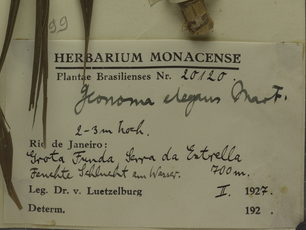 99
HERBARIUM MONACENSE
Plantae Brasilienses Nr. 20120.
Geonoma elegans Mart.
2-3 m hoch.
Rio de Janeiro:
Grota Funda Serra da Estrella
Feuchte Schlucht am Wasser. 700m.
Leg. Dr. v. Luetzelburg II. 1927.
Determ. 192 .